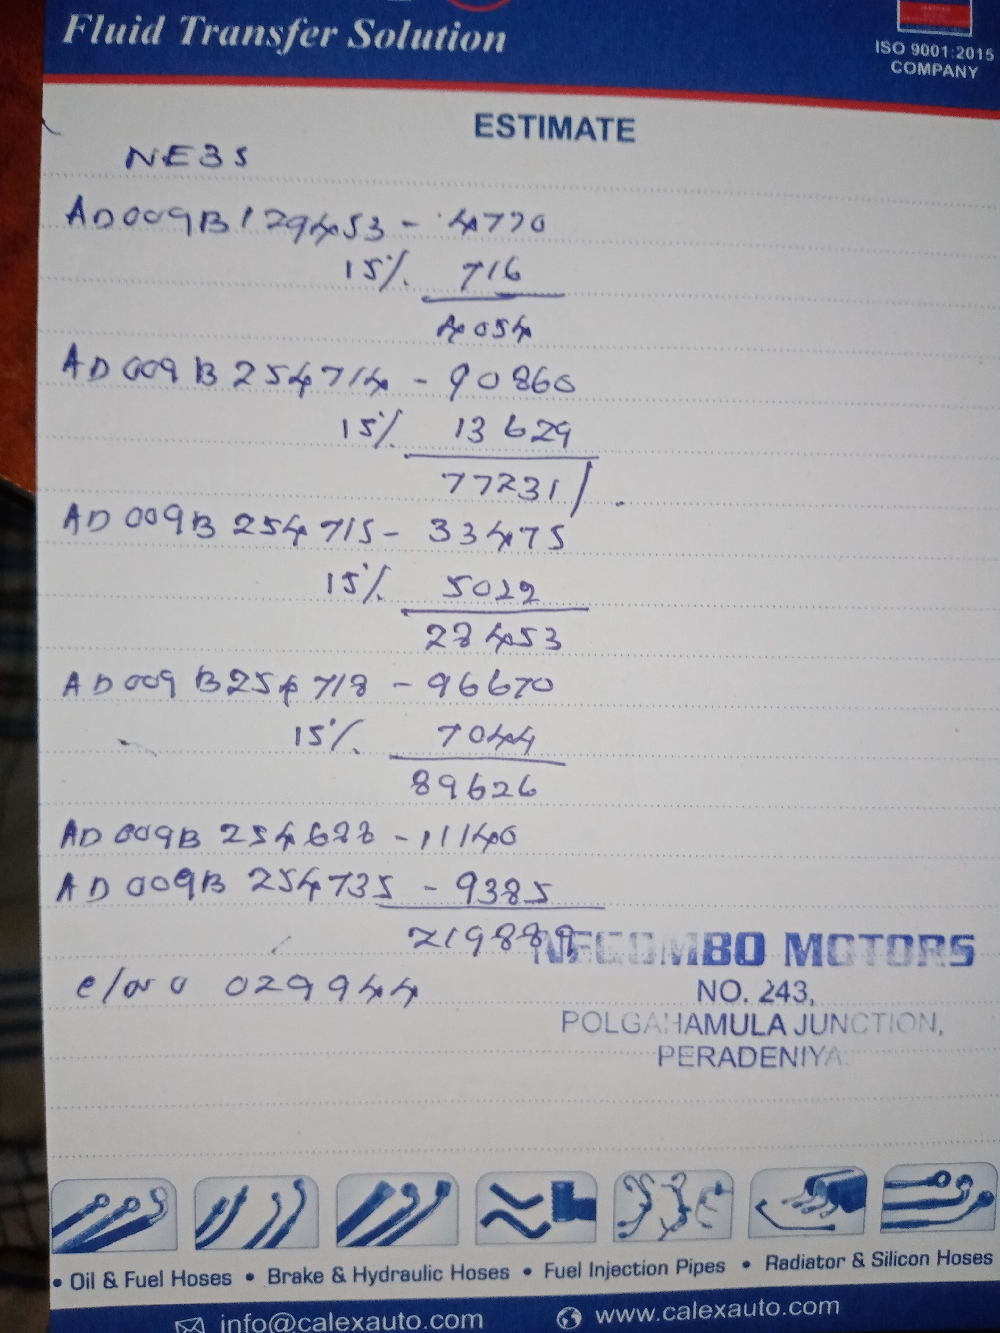 Fluid Transfer Solution
ISO 9001:2015
COMPANY
ESTIMATE
NE3S
AD009B129453 - 4770
15% 716
4054
AD009B254714 - 90860
15% 13629
77231/.
AD009B254715 - 33475
15% 5022
28453
AD009B254718 - 96670
15% 7044
89626
AD009B254628 - 11140
AD009B254735 - 9385
219889
029944
NEGOMBO MOTORS
NO. 243,
POLGAHAMULA JUNCTION,
PERADENIYA.
• Oil & Fuel Hoses • Brake & Hydraulic Hoses • Fuel Injection Pipes • Radiator & Silicon Hoses
info@calexauto.com www.calexauto.com